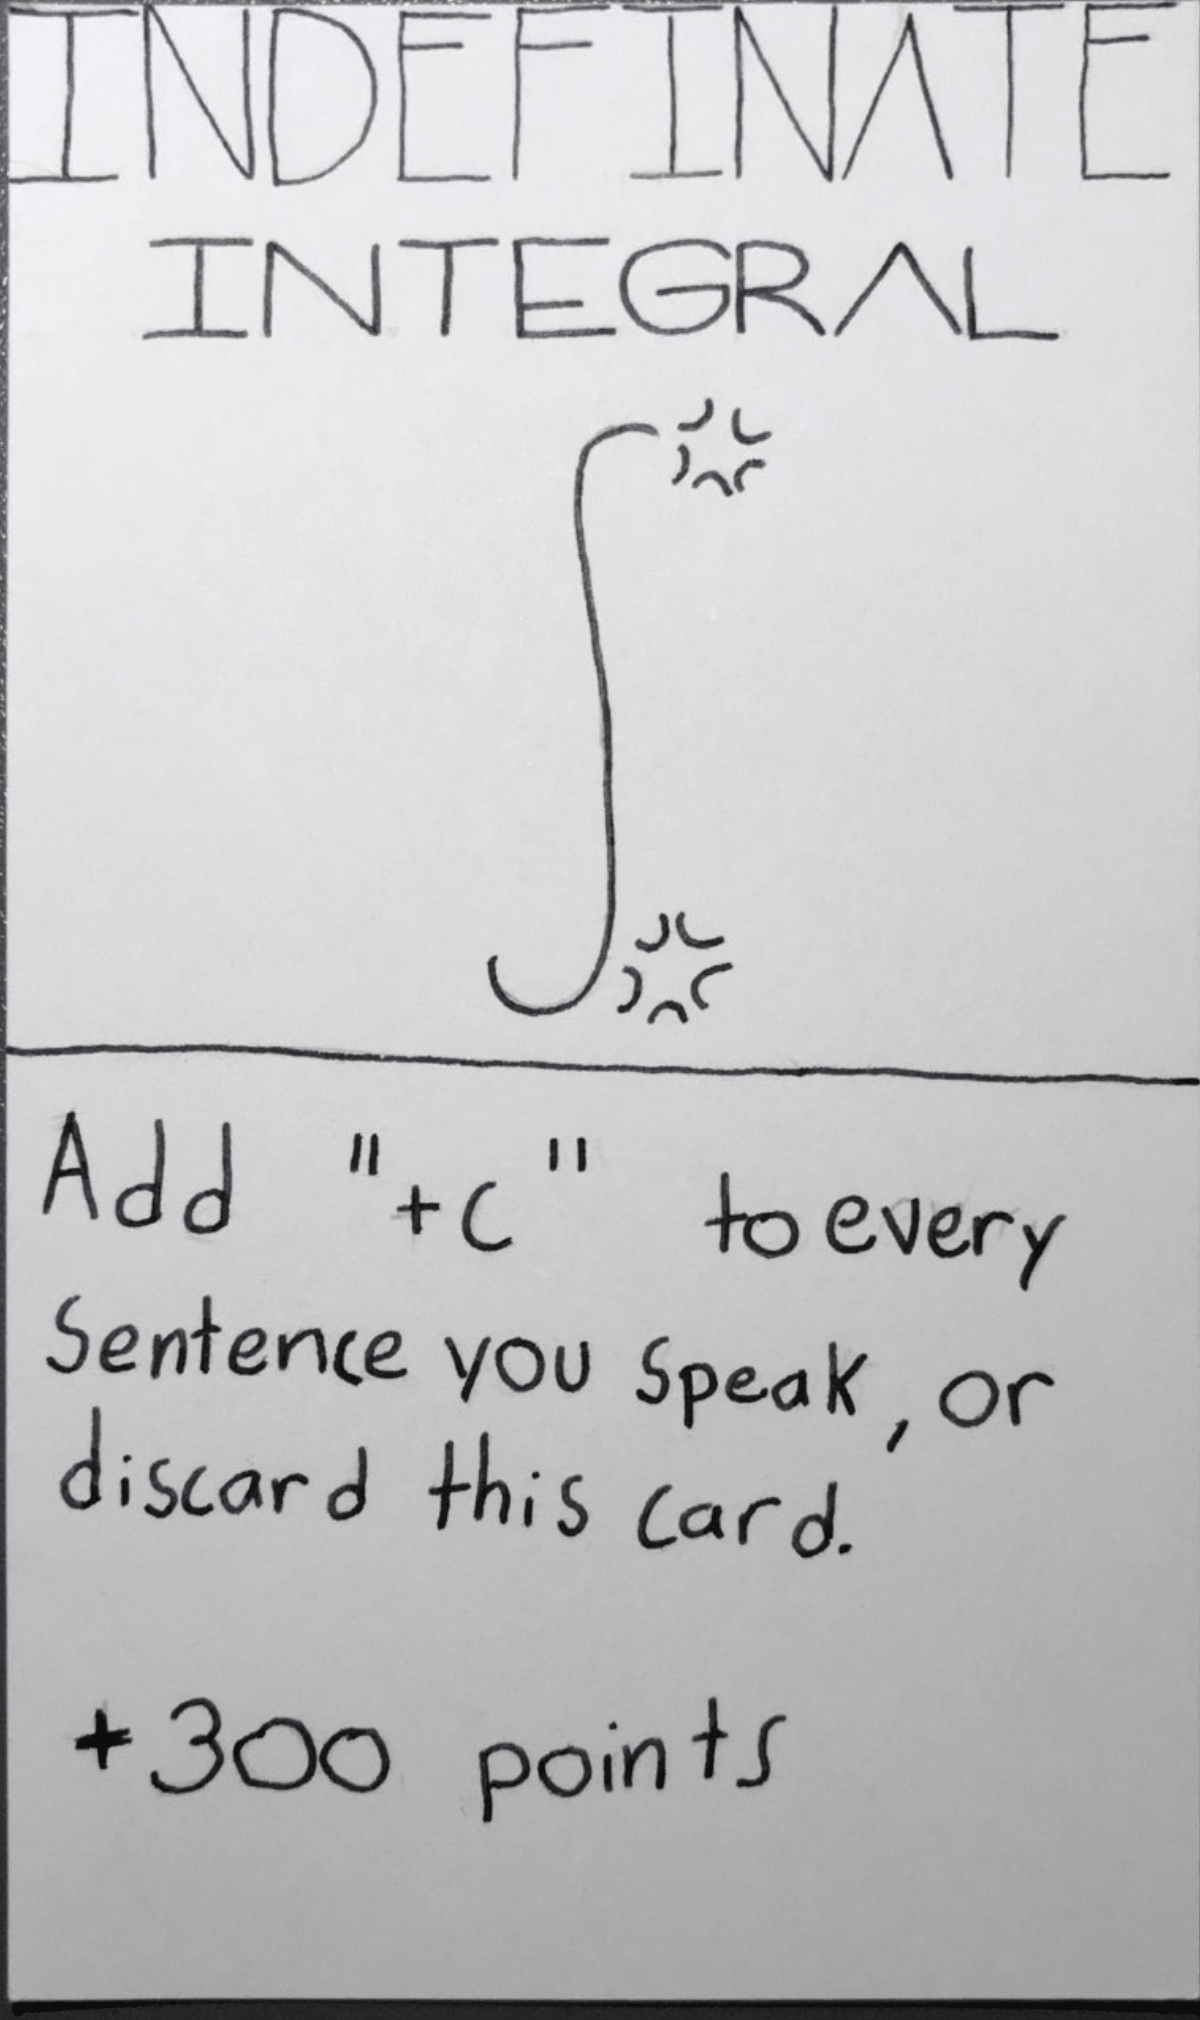 INDEFINATE
INTEGRAL
∫
Add "+C" to every
Sentence you speak, or
discard this card.
+300 points